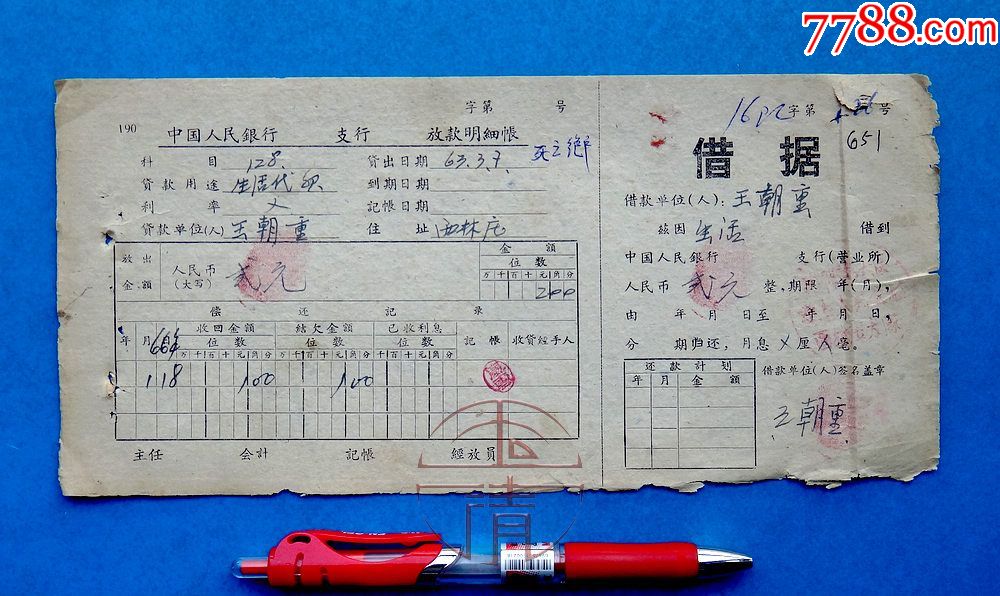 7788.com
字第 号
190
中国人民銀行 支行 放款明細帳
科 目 128. 貸出日期 63.3.7.
貸款用途 生活代款 到期日期
利 率 記帳日期
貸款单位(人) 王朝重 住 址 西林庄
放出
金額
人民币
(大写)
貳元
金 額
位 数
万千百十元角分
200
偿 还 記 录
年 月 日 收回金額 結欠金額 已收利息 記 帳 收貸經手人
位 数 位 数 位 数
万千百十元角分 万千百十元角分 万千百十元角分
118 100 100
主任 会計 記帳 經放員
字第 号
651
借据
借款单位(人): 王朝重
茲因 生活 借到
中国人民銀行 支行(营业所)
人民币 貳元 整,期限 年(月),
由 年 月 日至 年 月 日,
分 期归还,月息 厘 毫.
还 款 計 划
年 月 金 額
借款单位(人)签名盖章
王朝重